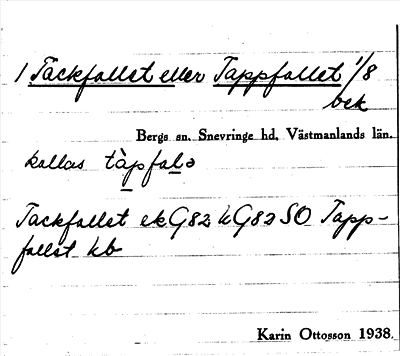 1 Täckfallet eller Tappfallet 1/8
bek
Bergs sn. Snevringe hd, Västmanlands län.
kallas tàpfalə
Tackfallet ek G82 h G82 SO Tapp-
fallet kb
Karin Ottosson 1938.